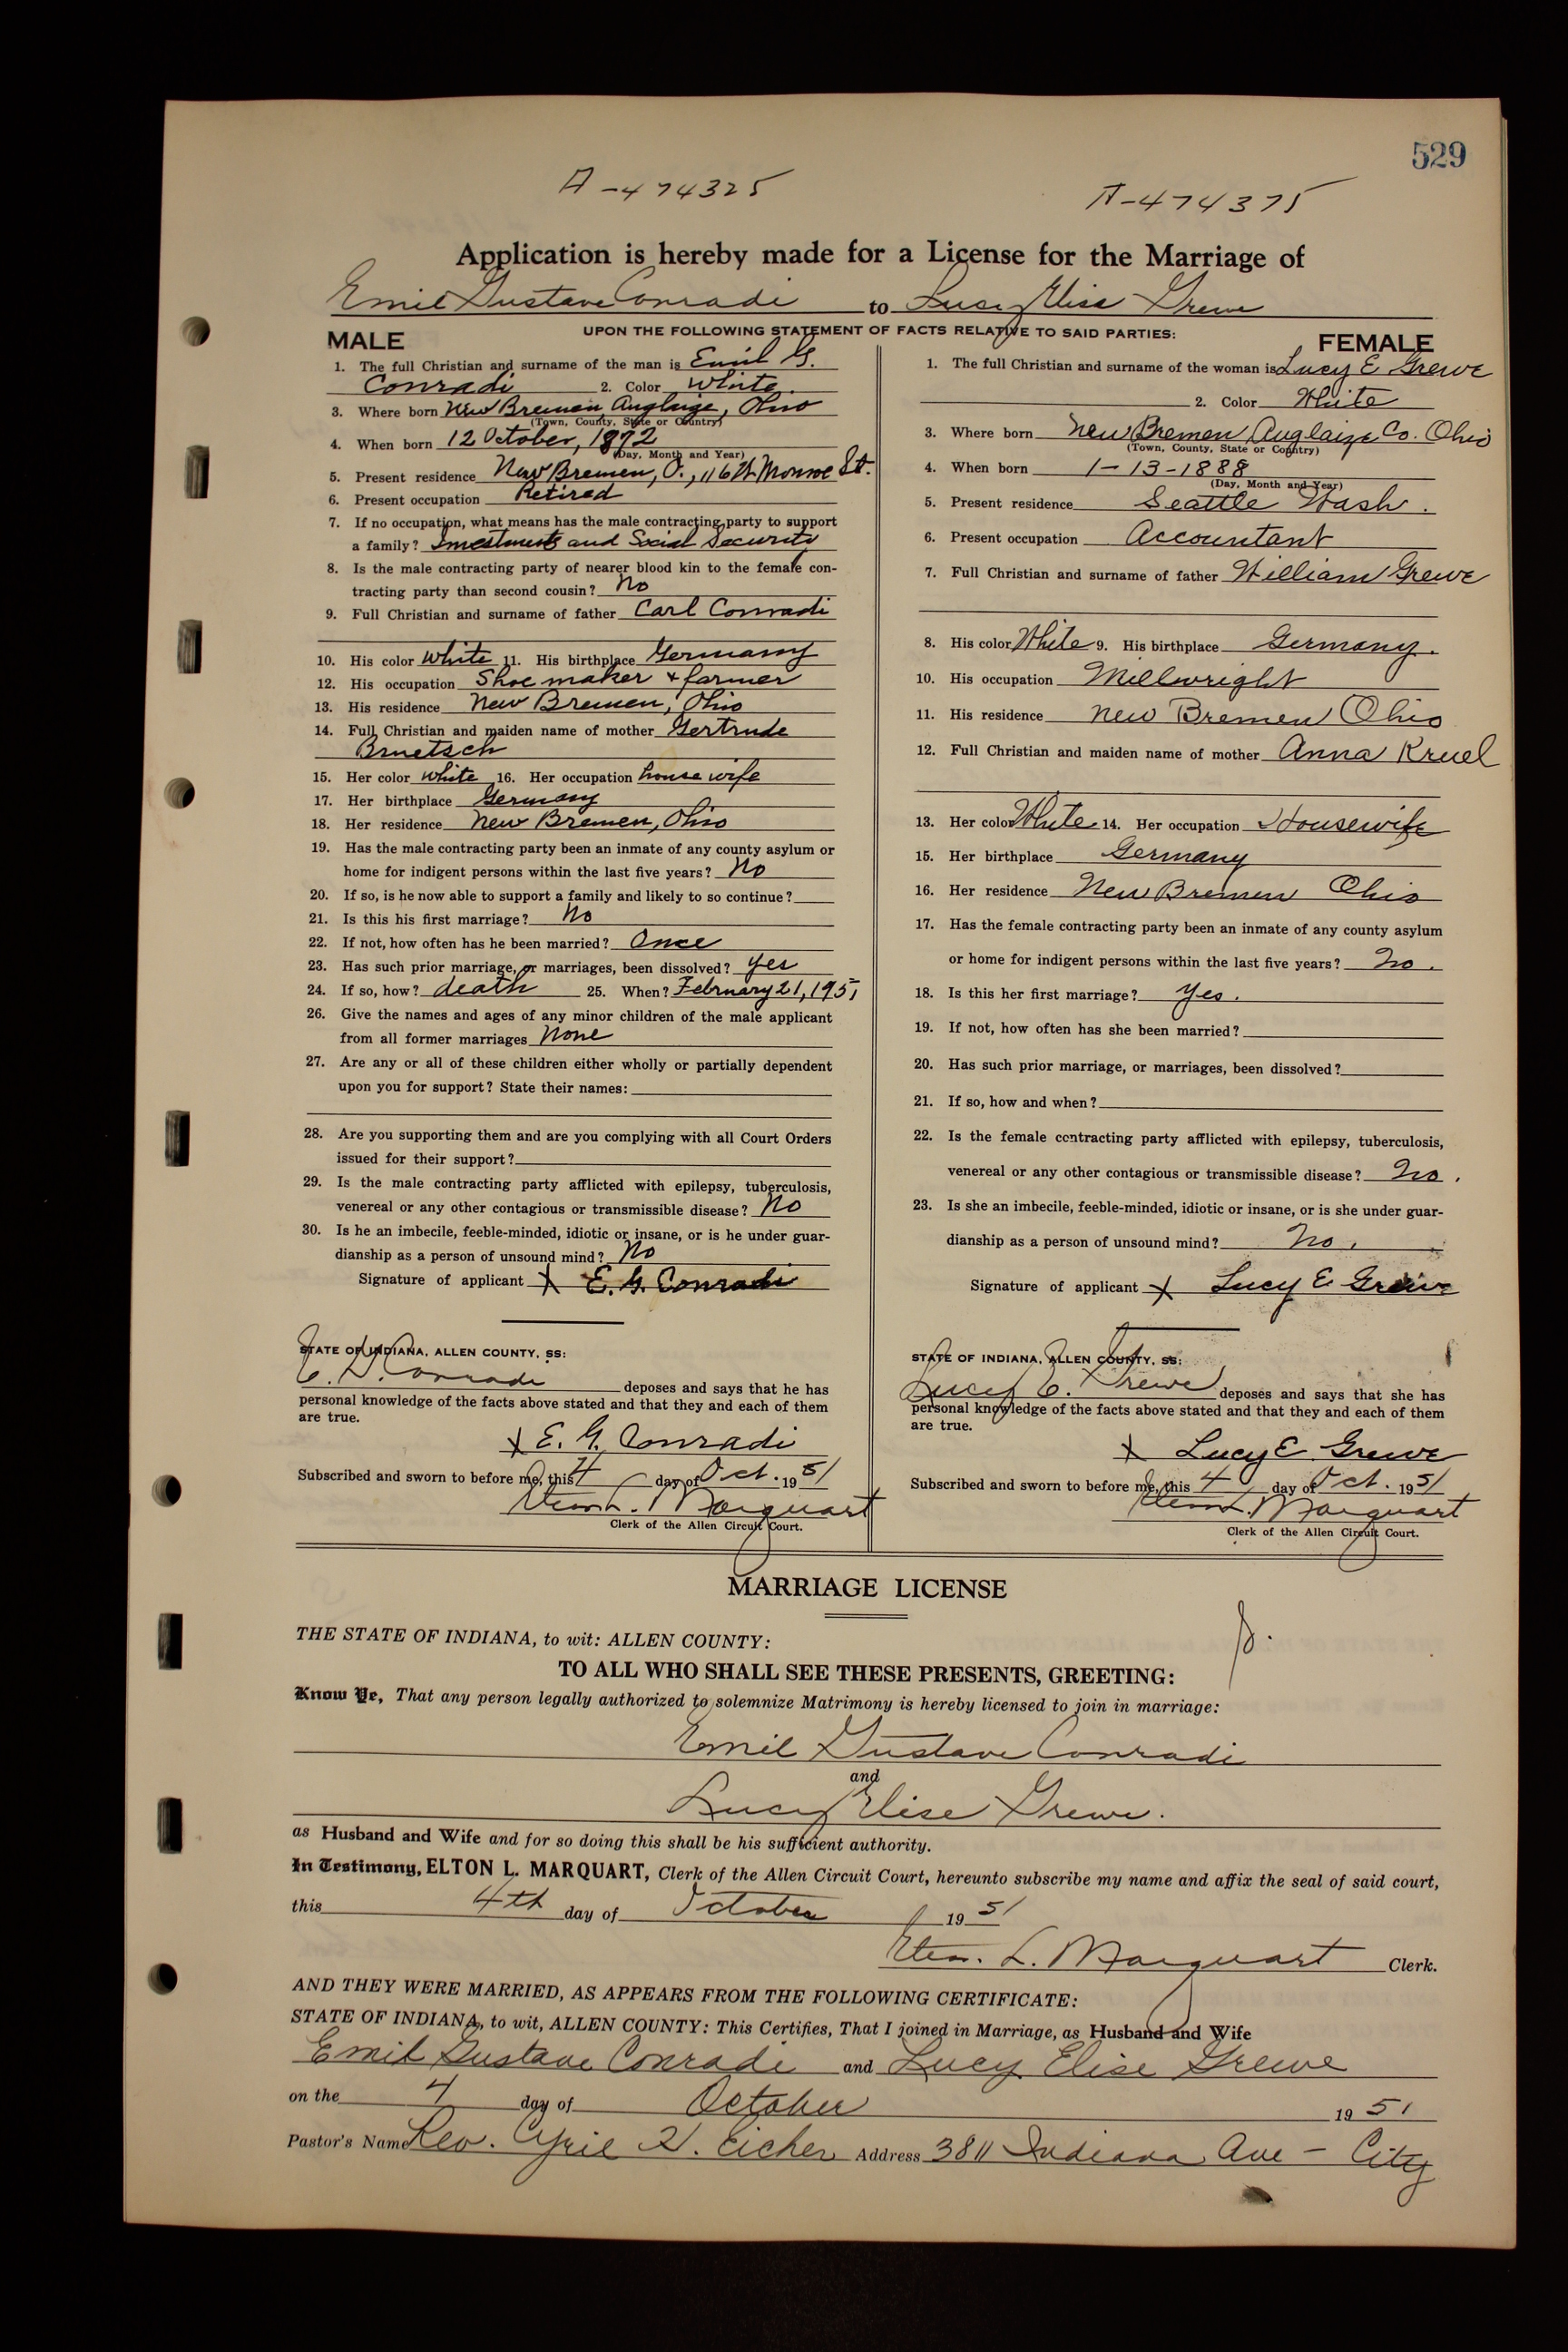 529
A-474325 A-474375
Application is hereby made for a License for the Marriage of
Emil Gustave Conradi to Lucy Elise Grewe
UPON THE FOLLOWING STATEMENT OF FACTS RELATIVE TO SAID PARTIES:
MALE
1. The full Christian and surname of the man is Emil G.
Conradi 2. Color White
3. Where born New Bremen, Auglaize, Ohio
(Town, County, State or Country)
4. When born 12 October, 1872
(Day, Month and Year)
5. Present residence New Bremen, O., 116 W Monroe St.
6. Present occupation Retired
7. If no occupation, what means has the male contracting party to support
a family? Investments and Social Security
8. Is the male contracting party of nearer blood kin to the female con-
tracting party than second cousin? No
9. Full Christian and surname of father Carl Conradi
10. His color White 11. His birthplace Germany
12. His occupation Shoe maker + farmer
13. His residence New Bremen, Ohio
14. Full Christian and maiden name of mother Gertrude
Bruetsch
15. Her color White 16. Her occupation house wife
17. Her birthplace Germany
18. Her residence New Bremen, Ohio
19. Has the male contracting party been an inmate of any county asylum or
home for indigent persons within the last five years? No
20. If so, is he now able to support a family and likely to so continue?
21. Is this his first marriage? No
22. If not, how often has he been married? Once
23. Has such prior marriage, or marriages, been dissolved? yes
24. If so, how? death 25. When? February 21, 1951
26. Give the names and ages of any minor children of the male applicant
from all former marriages None
27. Are any or all of these children either wholly or partially dependent
upon you for support? State their names:
28. Are you supporting them and are you complying with all Court Orders
issued for their support?
29. Is the male contracting party afflicted with epilepsy, tuberculosis,
venereal or any other contagious or transmissible disease? No
30. Is he an imbecile, feeble-minded, idiotic or insane, or is he under guar-
dianship as a person of unsound mind? No
Signature of applicant X E. G. Conradi
STATE OF INDIANA, ALLEN COUNTY, SS:
E. G. Conradi deposes and says that he has
personal knowledge of the facts above stated and that they and each of them
are true.
X E. G. Conradi
Subscribed and sworn to before me, this 4 day of Oct. 1951
Elton L. Marquart
Clerk of the Allen Circuit Court.
FEMALE
1. The full Christian and surname of the woman is Lucy E Grewe
2. Color White
3. Where born New Bremen Auglaize Co. Ohio
(Town, County, State or Country)
4. When born 1-13-1888
(Day, Month and Year)
5. Present residence Seattle Wash.
6. Present occupation Accountant
7. Full Christian and surname of father William Grewe
8. His color White 9. His birthplace Germany.
10. His occupation Millwright
11. His residence New Bremen Ohio
12. Full Christian and maiden name of mother Anna Kruel
13. Her color White 14. Her occupation Housewife
15. Her birthplace Germany
16. Her residence New Bremen Ohio
17. Has the female contracting party been an inmate of any county asylum
or home for indigent persons within the last five years? No.
18. Is this her first marriage? Yes.
19. If not, how often has she been married?
20. Has such prior marriage, or marriages, been dissolved?
21. If so, how and when?
22. Is the female contracting party afflicted with epilepsy, tuberculosis,
venereal or any other contagious or transmissible disease? No.
23. Is she an imbecile, feeble-minded, idiotic or insane, or is she under guar-
dianship as a person of unsound mind? No.
Signature of applicant X Lucy E Grewe
STATE OF INDIANA, ALLEN COUNTY, SS:
Lucy E. Grewe deposes and says that she has
personal knowledge of the facts above stated and that they and each of them
are true.
X Lucy E. Grewe
Subscribed and sworn to before me, this 4 day of Oct. 1951
Elton L. Marquart
Clerk of the Allen Circuit Court.
MARRIAGE LICENSE
THE STATE OF INDIANA, to wit: ALLEN COUNTY:
TO ALL WHO SHALL SEE THESE PRESENTS, GREETING:
Know Ye, That any person legally authorized to solemnize Matrimony is hereby licensed to join in marriage:
Emil Gustave Conradi
and
Lucy Elise Grewe.
as Husband and Wife and for so doing this shall be his sufficient authority.
In Testimony, ELTON L. MARQUART, Clerk of the Allen Circuit Court, hereunto subscribe my name and affix the seal of said court,
this 4th day of October 1951
Elton L. Marquart Clerk.
AND THEY WERE MARRIED, AS APPEARS FROM THE FOLLOWING CERTIFICATE:
STATE OF INDIANA, to wit, ALLEN COUNTY: This Certifies, That I joined in Marriage, as Husband and Wife
Emil Gustave Conradi and Lucy Elise Grewe
on the 4 day of October 1951
Pastor's Name Rev. Cyril H. Eicher Address 3811 Indiana Ave - City